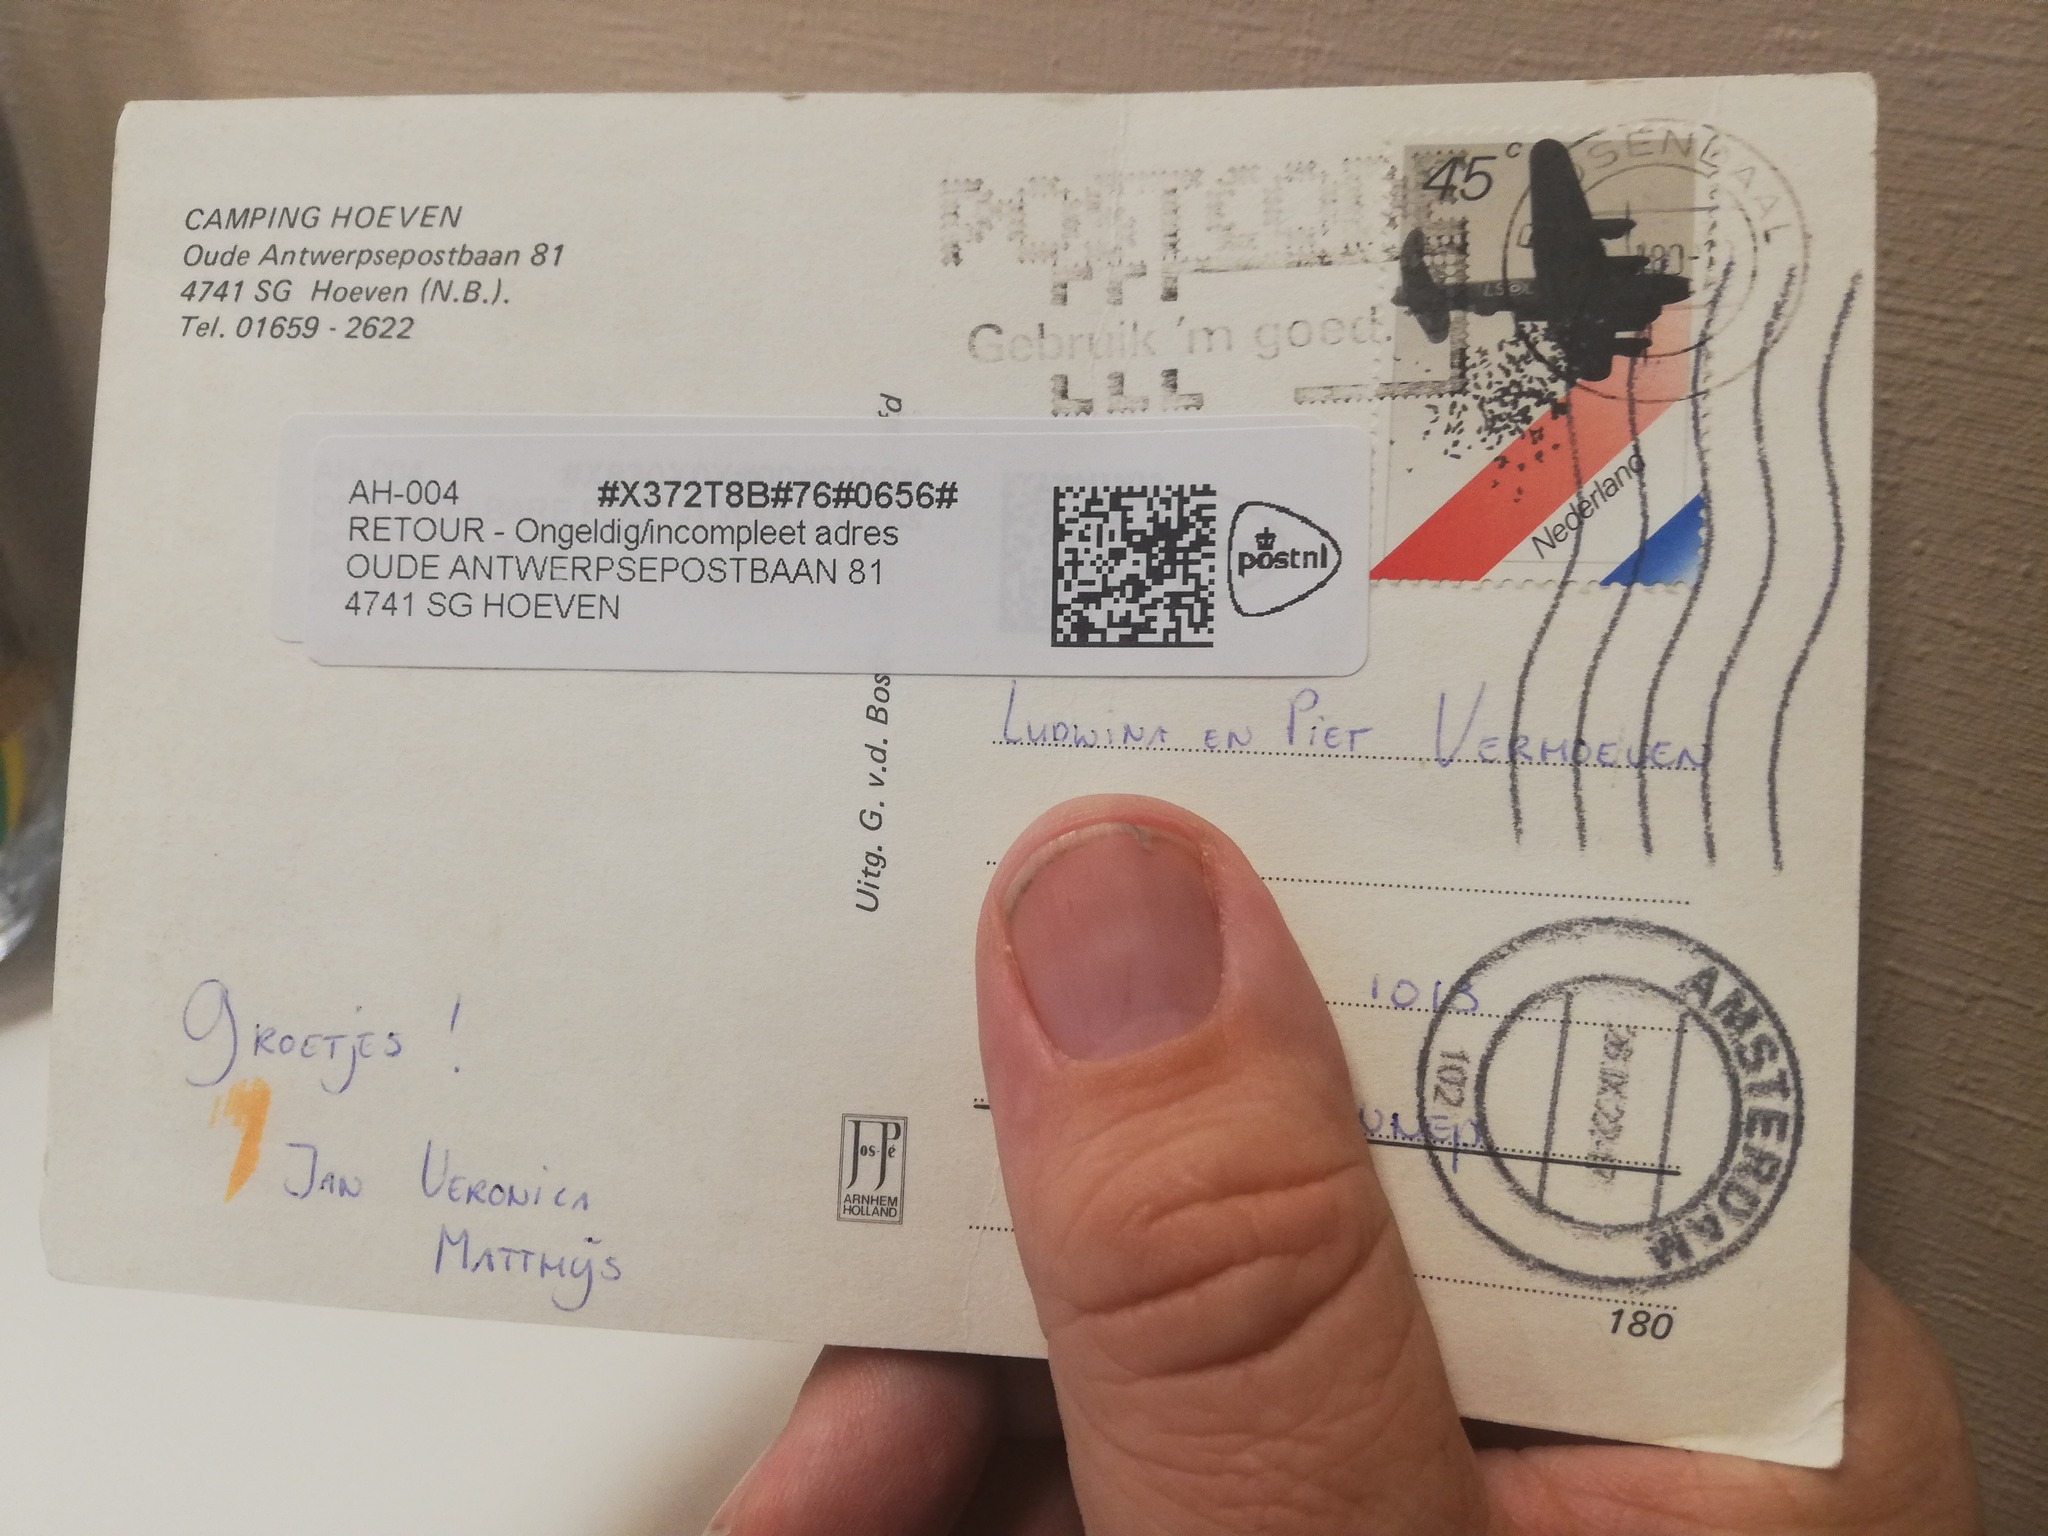 CAMPING HOEVEN
Oude Antwerpsepostbaan 81
4741 SG Hoeven (N.B.).
Tel. 01659 - 2622
Gebruik 'm goed.
45 c
Nederland
AH-004 #X372T8B#76#0656#
RETOUR - Ongeldig/incompleet adres
OUDE ANTWERPSEPOSTBAAN 81
4741 SG HOEVEN
postnl
Uitg. G. v.d. Bos
LUDWINA EN PIET VERHOEVEN
GROETJES !
JAN VERONICA
MATTHIJS
Jos-Pé
ARNHEM
HOLLAND
AMSTERDAM
102
180